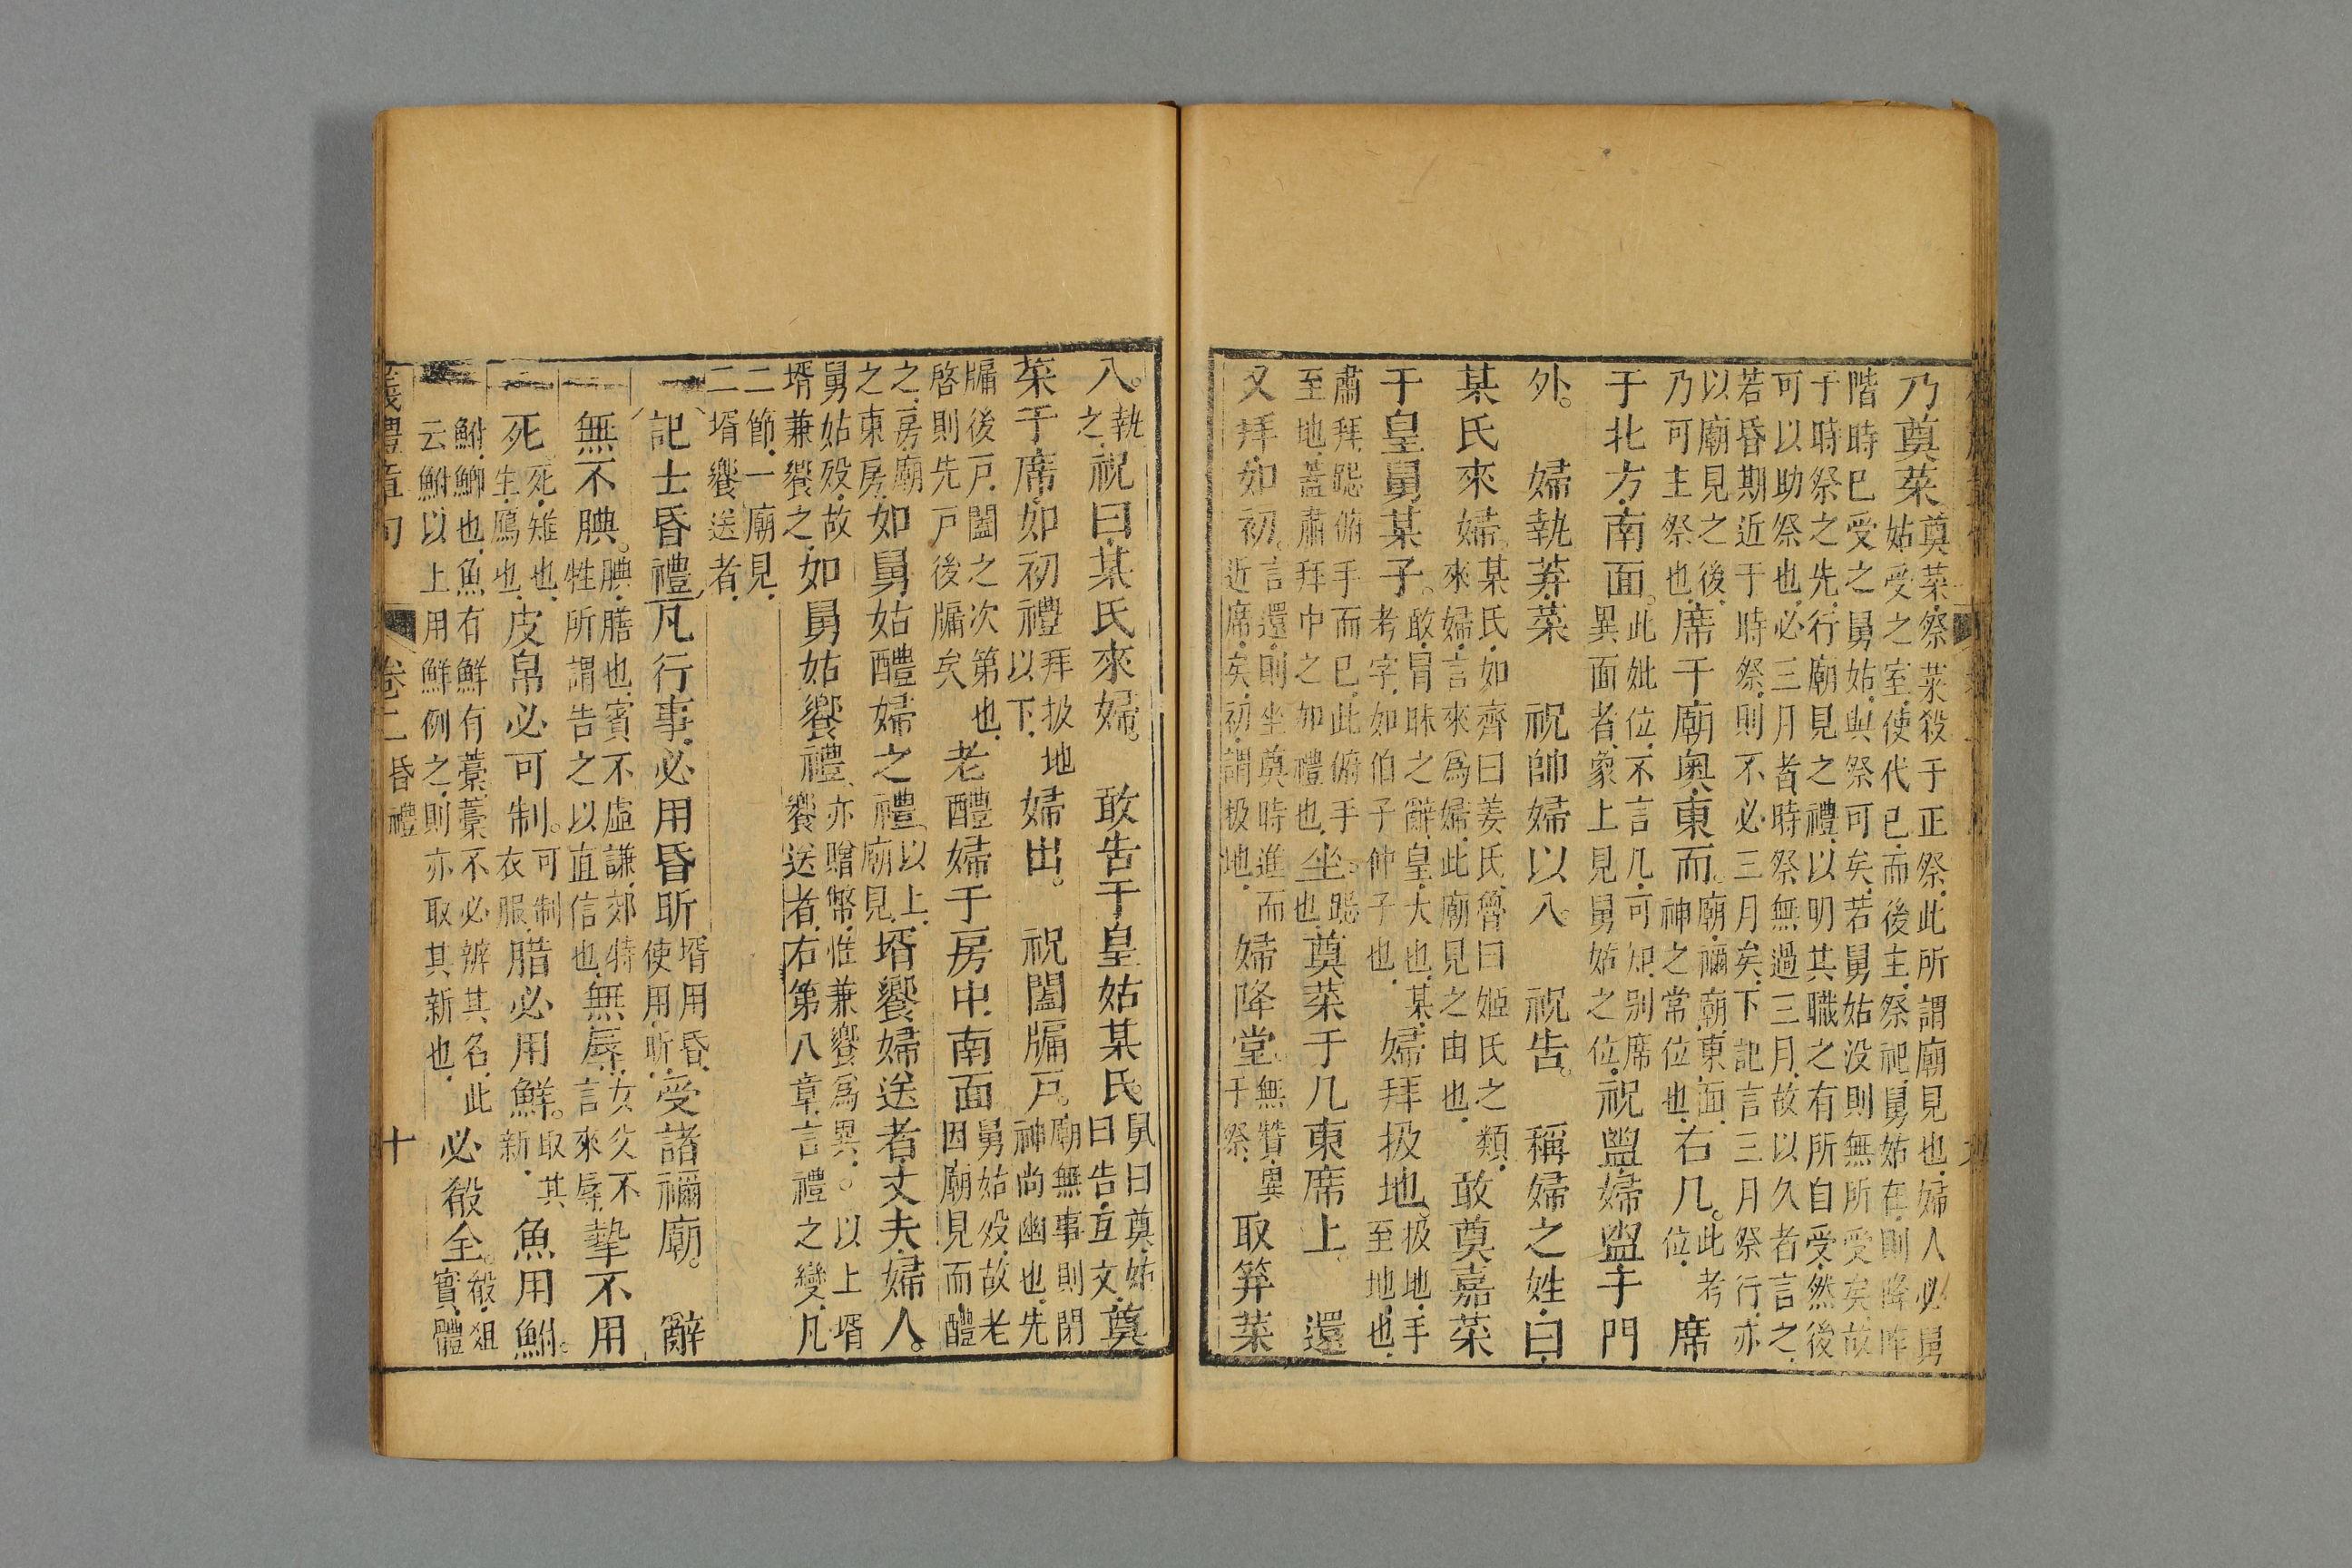 乃奠菜奠菜祭菜殺于正祭此所謂廟見也婦人必舅
姑受之室使代已而後主祭祀舅姑在則降阼
階時巳受之舅姑與祭可矣若舅姑没則無所受矣故
于時祭之先行廟見之禮以明其職之有所自受然後
可以助祭也必三月者時祭無過三月故以久者言之
若昏期近于時祭則不必三月矣下記言三月祭行亦
以廟見之後
乃可主祭也席于廟奧東面廟禰廟東面
神之常位也右几此考
位席
于北方南面此妣位不言几可知别席
異面者象上見舅姑之位祝盥婦盥于門
外。婦執笲菜祝帥婦以入。祝告。稱婦之姓曰
某氏來婦。某氏如齊曰姜氏魯曰姬氏之類
來婦言來爲婦此廟見之由也敢奠嘉菜
于皇舅某子。敢冒昧之辭皇大也某
考字如伯子仲子也婦拜扱地。扱地手
至地也
肅拜跽俯手而已此俯手
至地蓋肅拜中之如禮也坐。跽
也奠菜于几東席上。還
又拜如初。言還則坐奠時進而
近席矣初謂扱地婦降堂無贊異
于祭取笲菜
入。執
之祝曰某氏來婦。敢告于皇姑某氏。舅曰奠姑
曰告互文奠
菜于席如初禮拜扱地
以下婦出。祝闔牖戸。廟無事則閉
神尚幽也先
牖後戸闔之次第也
啓則先戸後牖矣老醴婦于房中南面舅姑殁故老
因廟見而醴
之房廟
之東房如舅姑醴婦之禮。以上
廟見壻饗婦送者丈夫婦人。
舅姑殁故
壻兼饗之如舅姑饗禮亦贈幣惟兼饗爲異。以上壻
饗送者右第八章言禮之變凡
二節一廟見
二壻饗送者
記士昏禮凡行事必用昏昕壻用昏
使用昕受諸禰廟。辭
無不腆。腆膳也賓不虛謙郊特
牲所謂告之以直信也無辱女父不
言來辱摯不用
死死雉也
生鴈也皮帛必可制。可制
衣服腊必用鮮。取其
新魚用鮒。
鮒鯽也魚有鮮有薧薧不必辨其名此
云鮒以上用鮮例之則亦取其新也必殽全。殽俎
實體
儀禮章句 卷二昏禮 十